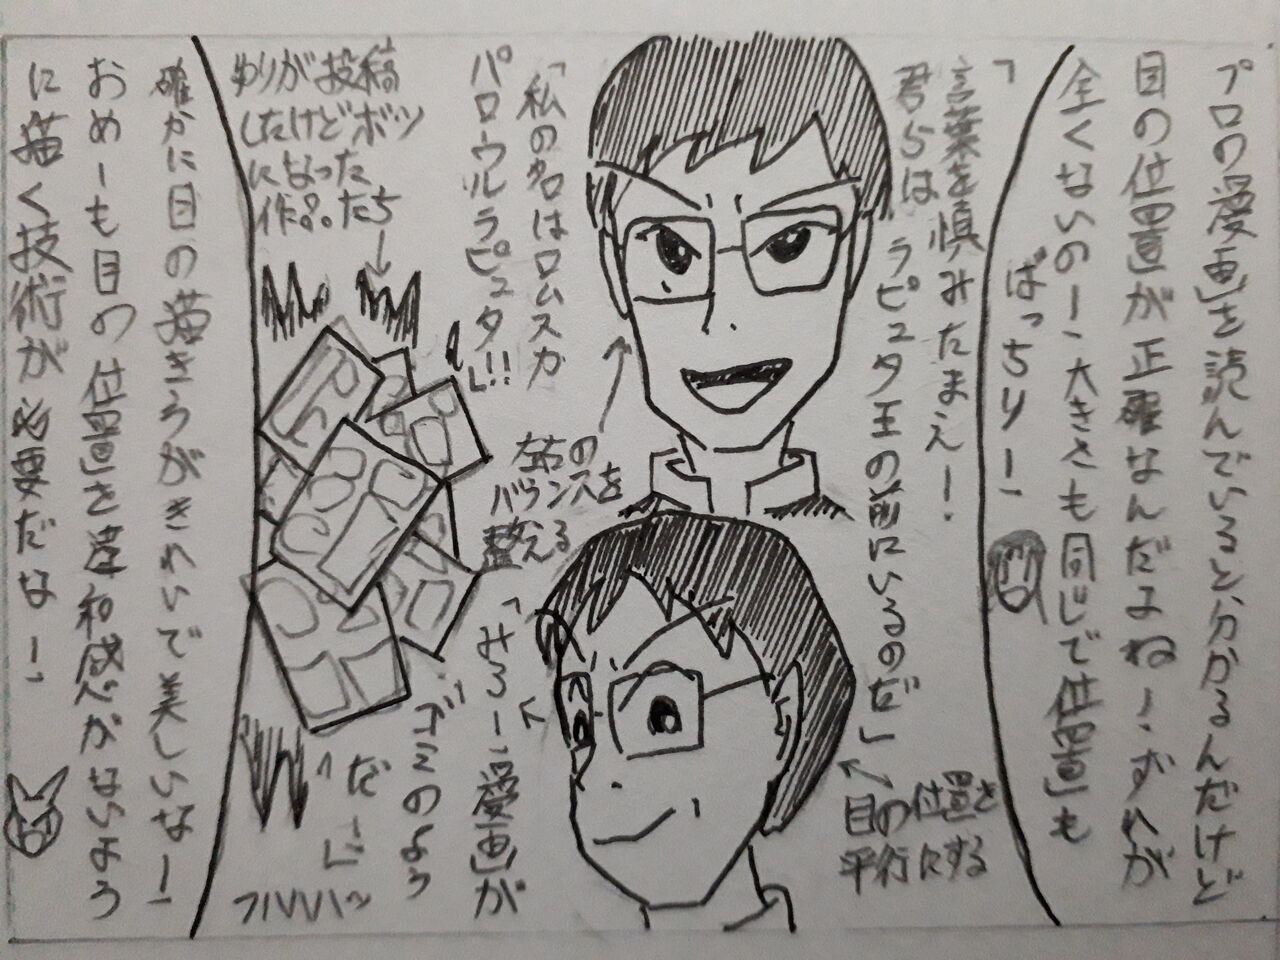 プロの漫画を読んでいると、分かるんだけど
目の位置が正確なんだよね！ずれが
全くないの！大きさも同じで位置も
ばっちりー！
「言葉を慎みたまえ！
君らはラピュタ王の前にいるのだ」
「私の名はロムスカ
パロウルラピュタ!!」
左右の
バランスを
整える
めりが投稿
したけどボツ
になった
作品たち
目の位置を
平行にする
「みろー！漫画が
ゴミのよう
だー！」
フハハハッ
確かに目の描き方がきれいで美しいな！
おめーも目の位置を違和感がないよう
に描く技術が必要だな！